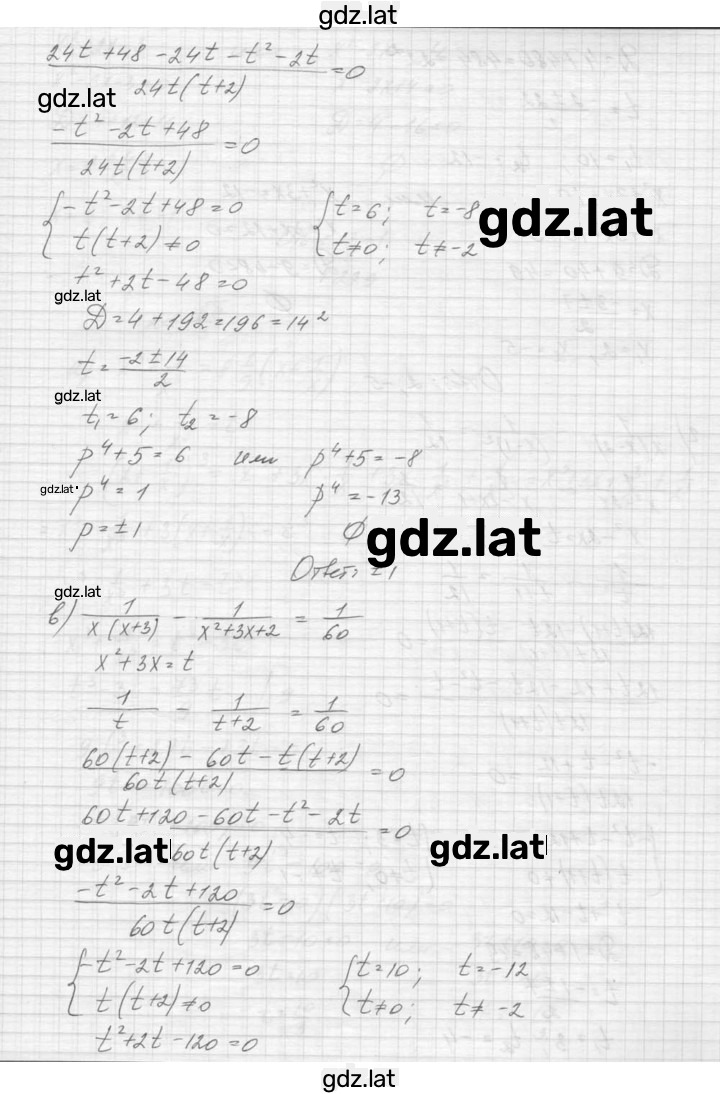 gdz.lat
24t + 48 - 24t - t² - 2t / 24t(t+2) = 0
gdz.lat
-t² - 2t + 48 / 24t(t+2) = 0
{ -t² - 2t + 48 = 0 { t = 6; t = -8
gdz.lat
t(t+2) ≠ 0 t ≠ 0; t ≠ -2
t² + 2t - 48 = 0
gdz.lat
D = 4 + 192 = 196 = 14²
t = -2 ± 14 / 2
gdz.lat
t₁ = 6; t₂ = -8
p⁴ + 5 = 6 или p⁴ + 5 = -8
gdz.lat
p⁴ = 1 p⁴ = -13
p = ±1 ∅
gdz.lat
Ответ: ±1
gdz.lat
в) 1 / x(x+3) - 1 / x²+3x+2 = 1 / 60
x² + 3x = t
1 / t - 1 / t+2 = 1 / 60
60(t+2) - 60t - t(t+2) / 60t(t+2) = 0
60t + 120 - 60t - t² - 2t / 60t(t+2) = 0
gdz.lat gdz.lat
-t² - 2t + 120 / 60t(t+2) = 0
{ -t² - 2t + 120 = 0 { t = 10; t = -12
t(t+2) ≠ 0 t ≠ 0; t ≠ -2
t² + 2t - 120 = 0
gdz.lat